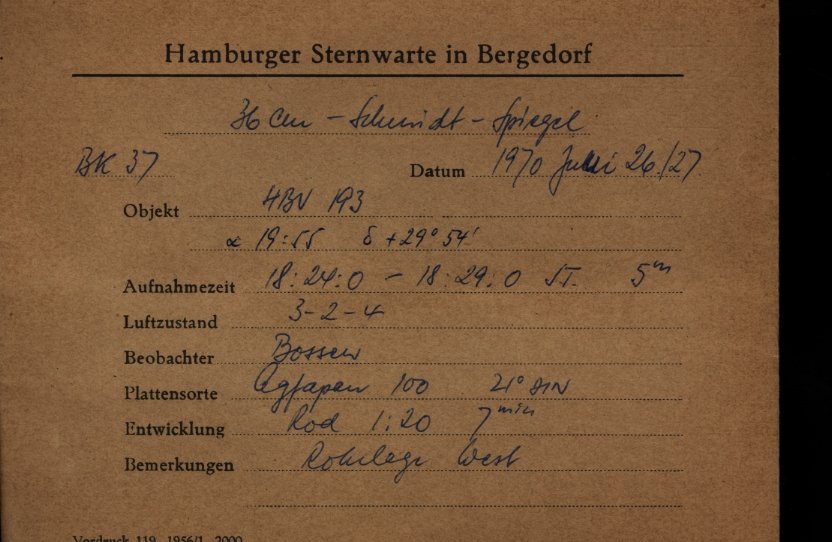 Hamburger Sternwarte in Bergedorf
36 cm - Schmidt - Spiegel
BK 37 Datum 1970 Juni 26./27
Objekt HBV 193
α 19:55 δ +29° 54'
Aufnahmezeit 18:24:0 - 18:29:0 ST. 5m
Luftzustand 3-2-4
Beobachter Bossen
Plattensorte Agfapan 100 21° DIN
Entwicklung Rod 1:20 7min
Bemerkungen Rohrlage West
Vordruck 119 1956/1 2000